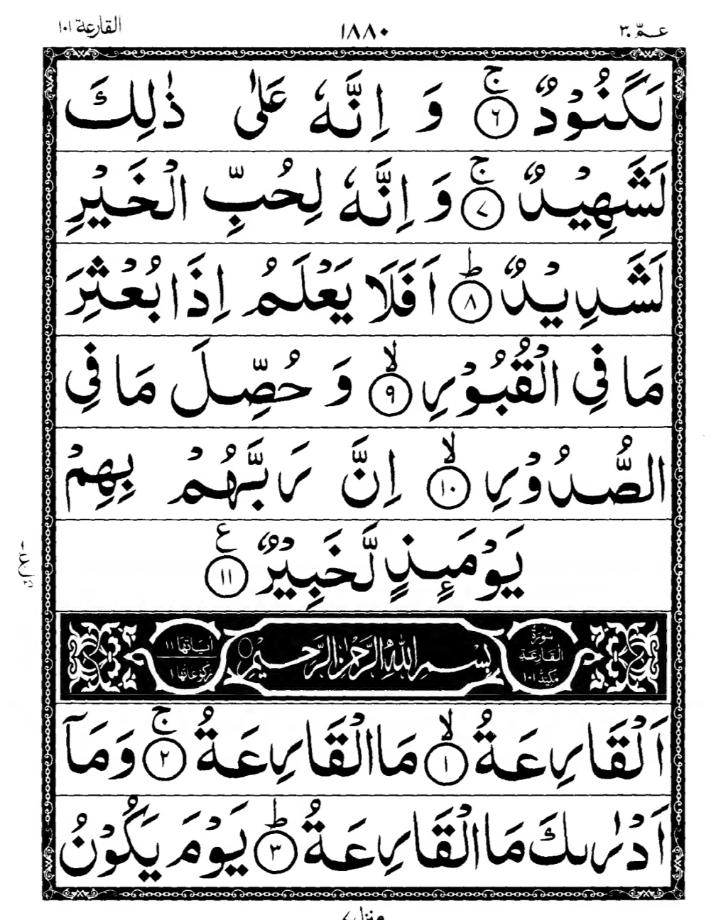 عمّ ٣٠
١٨٨٠
القارعة ١٠١
لَكَنُوْدٌ ۚ﴿٦﴾ وَ اِنَّهٗ عَلٰى ذٰلِكَ
لَشَهِيْدٌ ۚ﴿٧﴾ وَ اِنَّهٗ لِحُبِّ الْخَيْرِ
لَشَدِيْدٌ ؕ﴿٨﴾ اَفَلَا يَعْلَمُ اِذَا بُعْثِرَ
مَا فِي الْقُبُوْرِ ۙ﴿٩﴾ وَ حُصِّلَ مَا فِي
الصُّدُوْرِ ۙ﴿١٠﴾ اِنَّ رَبَّهُمْ بِهِمْ
يَوْمَئِذٍ لَّخَبِيْرٌ ﴿١١﴾ ع
سورة القارعة مكية ١٠١
بِسْمِ اللهِ الرَّحْمٰنِ الرَّحِيْمِ
اٰياتها ١١ ركوعاتها ١
اَلْقَارِعَةُ ۙ﴿١﴾ مَا الْقَارِعَةُ ۚ﴿٢﴾ وَمَآ
اَدْرٰىكَ مَا الْقَارِعَةُ ؕ﴿٣﴾ يَوْمَ يَكُوْنُ
منزل ٧